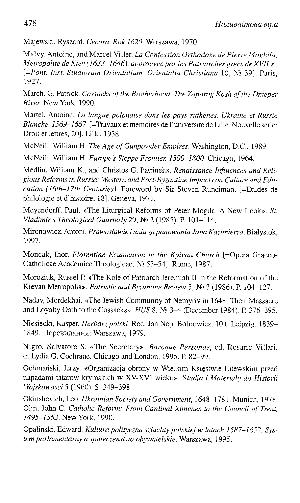 478 Нескінченна
Majewski, Ryszard. Cecora: Rok 1620. Warszawa, 1970.
Malvy, Antoine, and Marcel Viller. La Confession Orthodoxe de Pierre Moghila,
Métropolite de Kiev (1633–1646), approuvée par les Patriarches grecs du XVIIe s.
[=Pont. Inst. Studiorum Orientalium. Orientalia Christiana 10, № 39]. Paris,
1927.
March, G. Patrick. Cossacks of the Brotherhood: The Zaporog Kosh of the Dnieper
River. New York, 1990.
Martel, Antoine. La langue polonaise dans les pays ruthènes, Ukraine et Russie
Blanche, 1569–1667. [=Travaux et mémoires de l'Université de Lille. Nouvelle série:
Droit et lettres, 20]. Lille, 1938.
McNeill, William H. The Age of Gunpowder Empires. Washington, D.C., 1989.
McNeill, William H. Europe's Steppe Frontier, 1500–1800. Chicago, 1964.
Medlin, William K., and Christos G. Patrinelis. Renaissance Influences and Reli-
gious Reforms in Russia: Western and Post-Byzantine Impacts on Culture and Edu-
cation (16th–17th Centuries). Foreword by Sir Steven Runciman. [=Études de
philologie et d'histoire, 18]. Geneva, 1971.
Meyendorff, Paul. «The Liturgical Reforms of Peter Moghila: A New Look». St.
Vladimir's Theological Quarterly 29, № 2 (1985). P. 101–114.
Mironowicz, Antoni. Prawosławie i unia za panowania Jana Kazimierza. Białystok,
1997.
Monchak, Ihor. Florentine Ecumenism in the Kyivan Church [=Opera Graeco-
Catholicae Academiae Theologicae, № 53–54]. Rome, 1987.
Moroziuk, Russel P. «The Role of Patriarch Jeremiah II in the Reformation of the
Kievan Metropolia». Patristic and Byzantine Review 5, № 2 (1986). P. 104–127.
Nadav, Mordekhai. «The Jewish Community of Nemyriv in 1648: Their Massacre
and Loyalty Oath to the Cossacks». HUS 8, № 3–4 (December 1984). P. 376–395.
Niesiecki, Kasper. Herbarz polski. Red. Jan Nep. Bobrowicz. 10 t. Leipzig, 1839–
1846. Перевидання: Warszawa, 1979.
Nigro, Salvatore S. «The Secretary». Baroque Personae, ed. Rosario Villari,
tr. Lydia G. Cochrane. Chicago and London, 1995. P. 82–99.
Ochmański, Jerzy. «Organizacja obrony w Wielkim Księstwie Litewskim przed
napadami tatarów krymskich w XV–XVI wieku». Studia i Materiały do Historii
Wojskowości 5 (1960). S. 349–398.
Okinshevich, Leo. Ukrainian Society and Government, 1648–1781. Munich, 1978.
Olin, John C. Catholic Reform: From Cardinal Ximenes to the Council of Trent,
1495–1563. New York, 1990.
Opaliński, Edward. Kultura polityczna szlachty polskiej w latach 1587–1652: Sys-
tem parlamentarny a społeczeństwo obywatelskie. Warszawa, 1995.